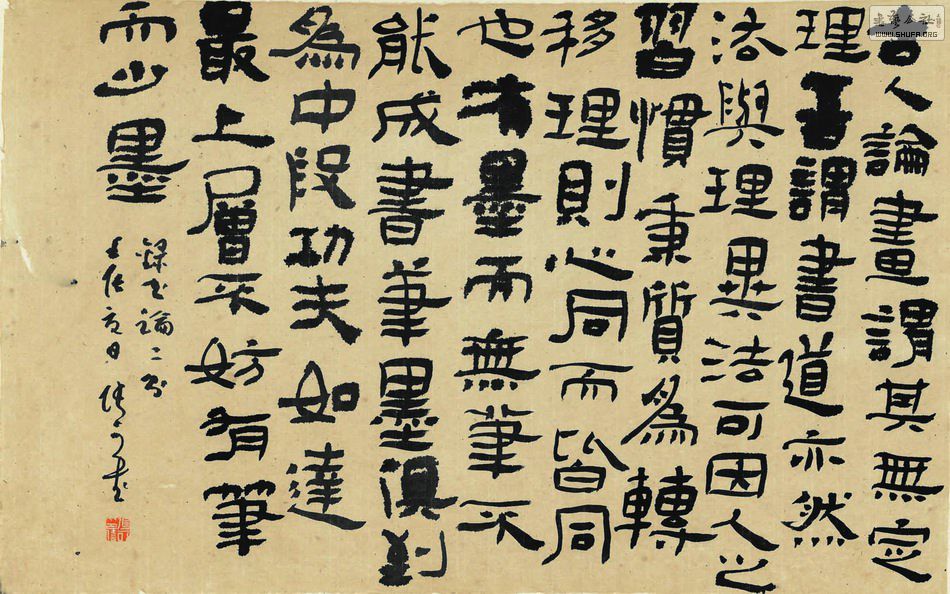 人論畫謂其無定
理吾謂書道亦然
法與理異法可因人之
習慣秉質為轉
移理則心同而皆同
也有墨而無筆不
能成書筆墨俱到
為中段功夫如達
最上層不妨有筆
而少墨
錄書論二則
夏日
WWW.SHUFA.ORG